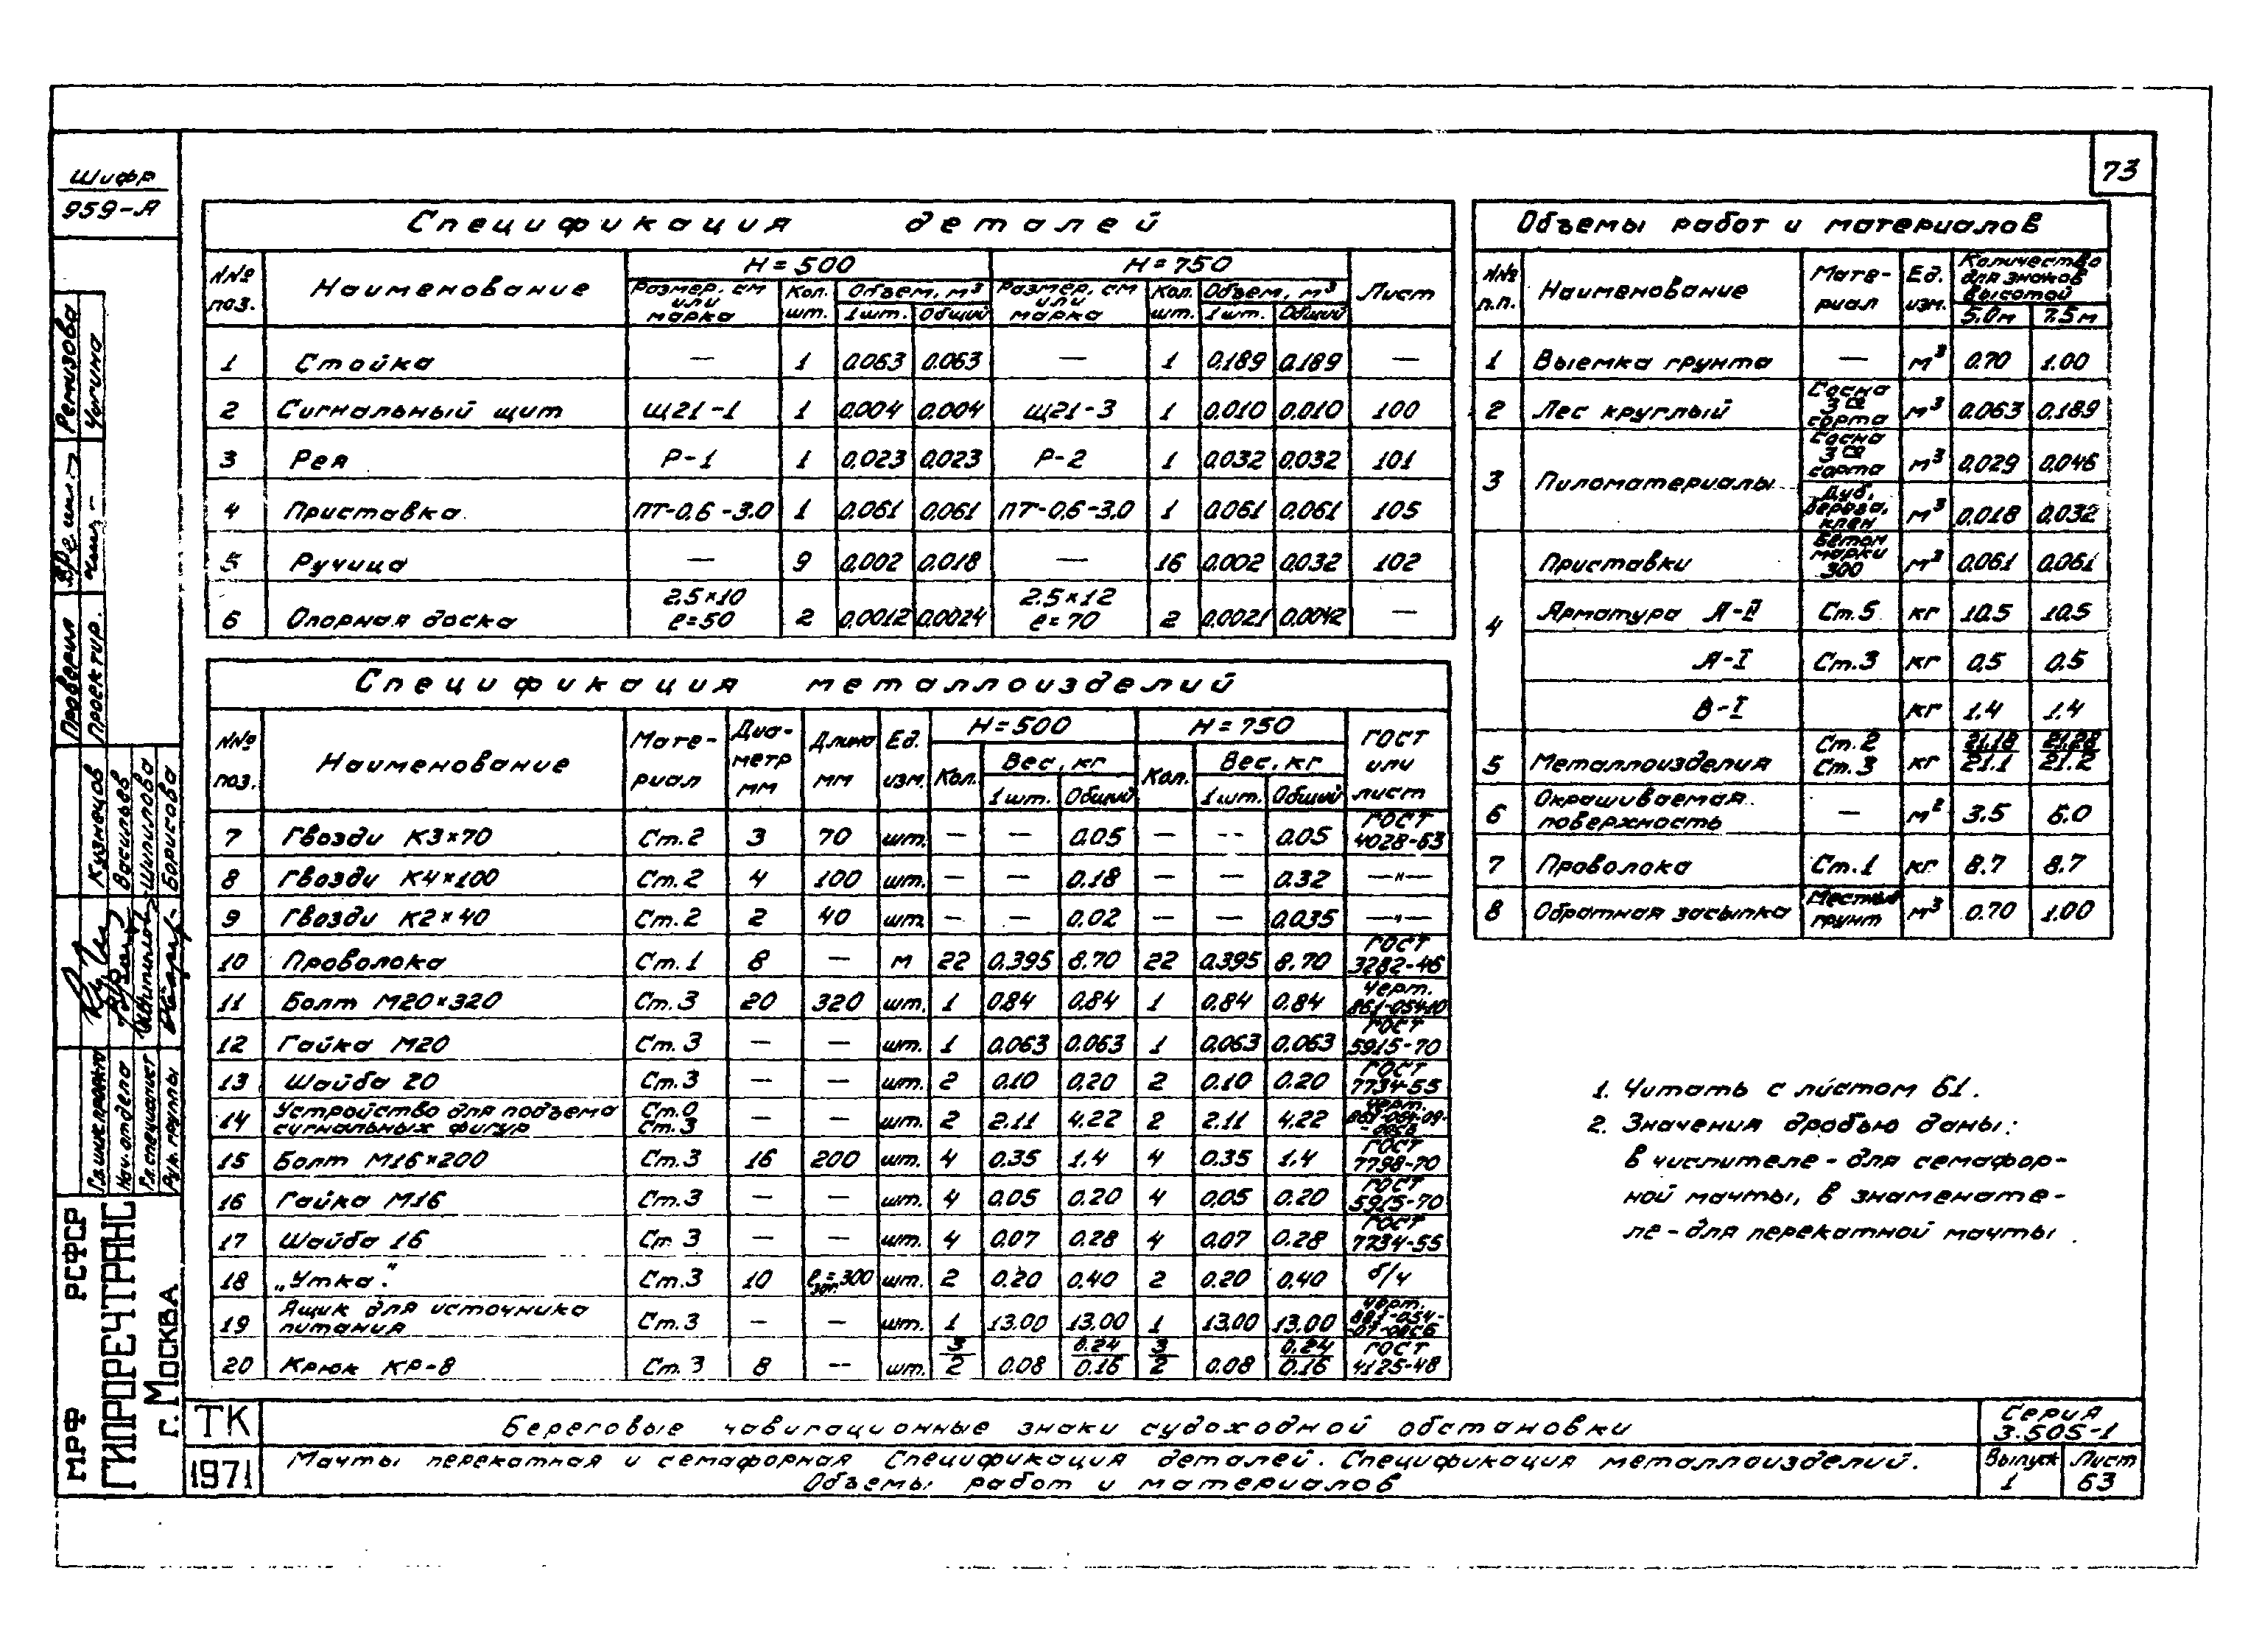 73
Шифр
959-А
Спецификация деталей
NNº поз. Наименование H=500 H=750 Лист
Размер, см или марка Кол. шт. Объем, м³ Размер, см или марка Кол. шт. Объем, м³
1шт. Общий 1шт. Общий
1 Стойка — 1 0.063 0.063 — 1 0.189 0.189 —
2 Сигнальный щит Щ21-1 1 0.004 0.004 Щ21-3 1 0.010 0.010 100
3 Рея Р-1 1 0.023 0.023 Р-2 1 0.032 0.032 101
4 Приставка ПТ-0.6-3.0 1 0.061 0.061 ПТ-0.6-3.0 1 0.061 0.061 105
5 Ручица — 9 0.002 0.018 — 16 0.002 0.032 102
6 Опорная доска 2.5×10 ℓ=50 2 0.0012 0.0024 2.5×12 ℓ=70 2 0.0021 0.0042 —
Спецификация металлоизделий
NNº поз. Наименование Мате-риал Диа-метр мм Длина мм Ед. изм. H=500 H=750 ГОСТ или лист
Кол. Вес, кг Кол. Вес, кг
1шт. Общий 1шт. Общий
7 Гвозди К3×70 Ст.2 3 70 шт. — — 0.05 — — 0.05 ГОСТ 4028-63
8 Гвозди К4×100 Ст.2 4 100 шт. — — 0.18 — — 0.32 —"—
9 Гвозди К2×40 Ст.2 2 40 шт. — — 0.02 — — 0.035 —"—
10 Проволока Ст.1 8 — м 22 0.395 8.70 22 0.395 8.70 ГОСТ 3282-46
11 Болт М20×320 Ст.3 20 320 шт. 1 0.84 0.84 1 0.84 0.84 Черт.
12 Гайка М20 Ст.3 — — шт. 1 0.063 0.063 1 0.063 0.063 ГОСТ 5915-70
13 Шайба 20 Ст.3 — — шт. 2 0.10 0.20 2 0.10 0.20 ГОСТ 7734-55
14 Устройство для подъема сигнальных фигур Ст.0 Ст.3 — — шт. 2 2.11 4.22 2 2.11 4.22 Черт.
15 Болт М16×200 Ст.3 16 200 шт. 4 0.35 1.4 4 0.35 1.4 ГОСТ 7798-70
16 Гайка М16 Ст.3 — — шт. 4 0.05 0.20 4 0.05 0.20 ГОСТ 5915-70
17 Шайба 16 Ст 3 — — шт. 4 0.07 0.28 4 0.07 0.28 ГОСТ 7734-55
18 „Утка" Ст.3 10 ℓзаг.=300 шт. 2 0.20 0.40 2 0.20 0.40 б/ч
19 Ящик для источника питания Ст.3 — — шт. 1 13.00 13.00 1 13.00 13.00 Черт.
20 Крюк КР-8 Ст.3 8 — шт. 3/2 0.08 0.24/0.16 3/2 0.08 0.24/0.16 ГОСТ 4125-48
Объемы работ и материалов
NNº п.п. Наименование Мате-риал Ед. изм. Количество для знаков высотой
5.0м 7.5м
1 Выемка грунта — м³ 0.70 1.00
2 Лес круглый Сосна 3го сорта м³ 0.063 0.189
3 Пиломатериалы Сосна 3го сорта м³ 0.029 0.046
Дуб, береза, клен м³ 0.018 0.032
4 Приставки Бетон марки 300 м³ 0.061 0.061
Арматура А-II Ст.5 кг 10.5 10.5
А-I Ст.3 кг 0.5 0.5
В-I кг 1.4 1.4
5 Металлоизделия Ст.2 Ст.3 кг 21.18/21.1 21.28/21.2
6 Окрашиваемая поверхность — м² 3.5 6.0
7 Проволока Ст.1 кг 8.7 8.7
8 Обратная засыпка Местный грунт м³ 0.70 1.00
1. Читать с листом 61.
2. Значения дробью даны:
в числителе - для семафор-
ной мачты, в знаменате-
ле - для перекатной мачты.
ТК
1971
Береговые навигационные знаки судоходной обстановки
Мачты перекатная и семафорная Спецификация деталей. Спецификация металлоизделий.
Объемы работ и материалов
Серия
3.505-1
Выпуск 1
Лист 63
МРФ РСФСР
ГИПРОРЕЧТРАНС
г. Москва
Гл.инж.пр-та Кузнецов
Нач.отдела Васильев
Гл.специалист Шипилова
Рук.группы Борисова
Проверил Ремизова
Проектир. Чугина